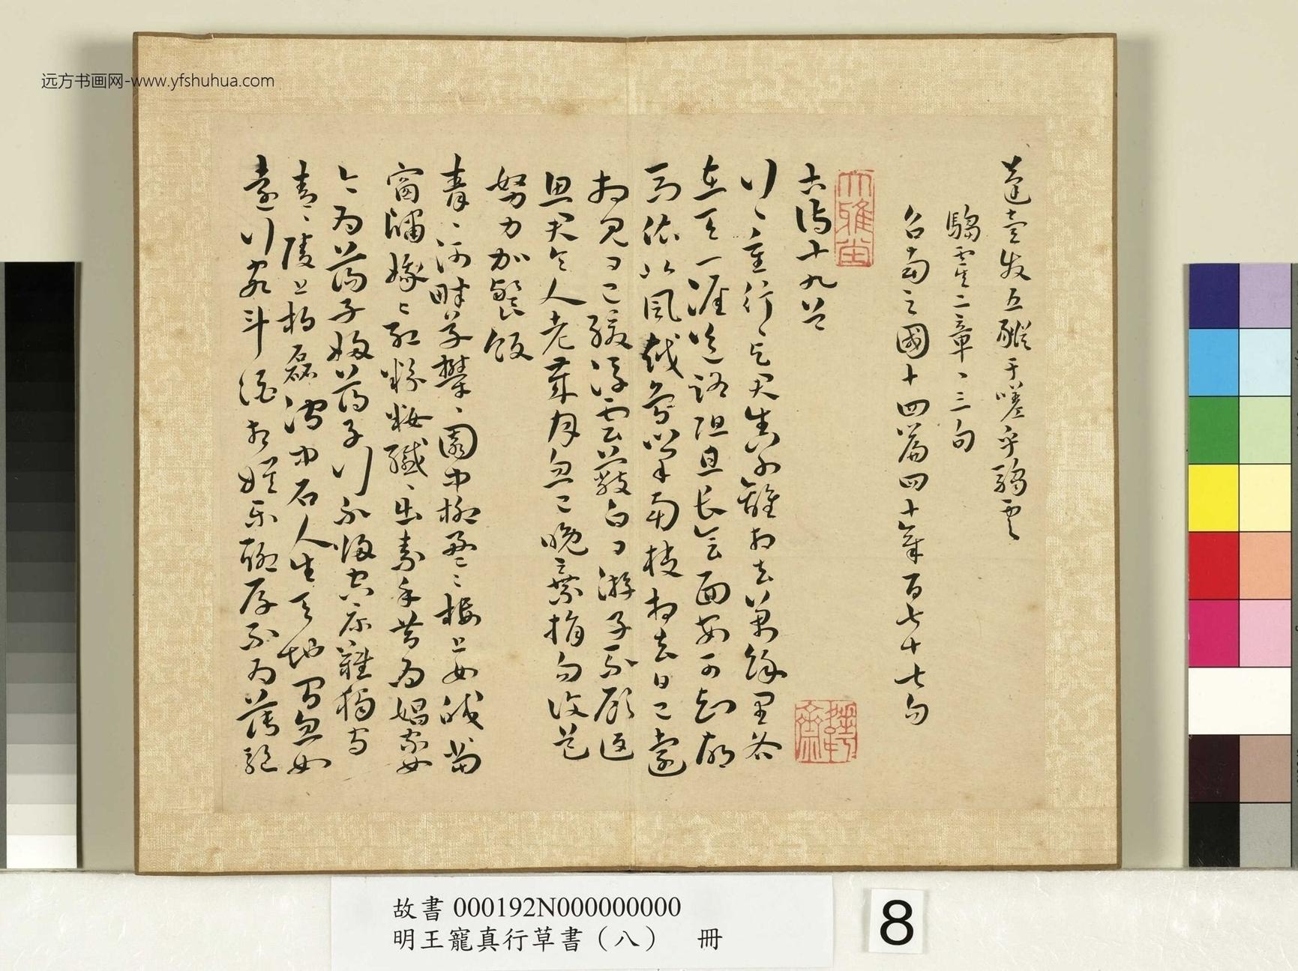 远方书画网-www.yfshuhua.com
蓬壹发五豵于嗟乎騶虞
騶虞二章章三句
召南之國十四篇四十章百七十七句
大雅堂
古詩十九首
行行重行行與君生別離相去萬餘里各
在天一涯道路阻且長會面安可知胡
馬依北風越鳥巢南枝相去日已遠
衣帶日已緩浮雲蔽白日游子不顧返
思君令人老歲月忽已晚棄捐勿復道
努力加餐飯
青青河畔草鬱鬱園中柳盈盈樓上女皎皎當
窗牖娥娥紅粉妝纖纖出素手昔為娼家女
今為蕩子婦蕩子行不歸空床難獨守
青青陵上柏磊磊澗中石人生天地間忽如
遠行客斗酒相娛樂聊厚不為薄驅
故書 000192N000000000
明王寵真行草書（八） 冊
8